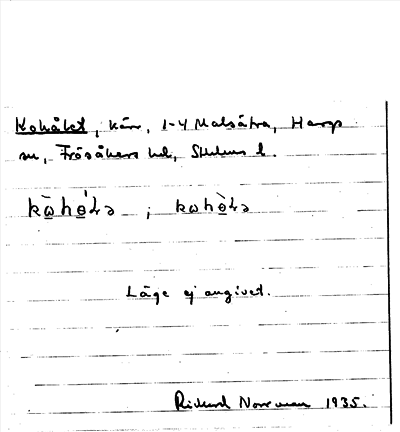 Kohålet, kärr, 1-4 Malsätra, Harg
sn, Frösåkers hd, Sthlms l.
kὼhǫ́lə ; kωhǫ̀lə
Läge ej angivet.
Rickard Norrman 1935.